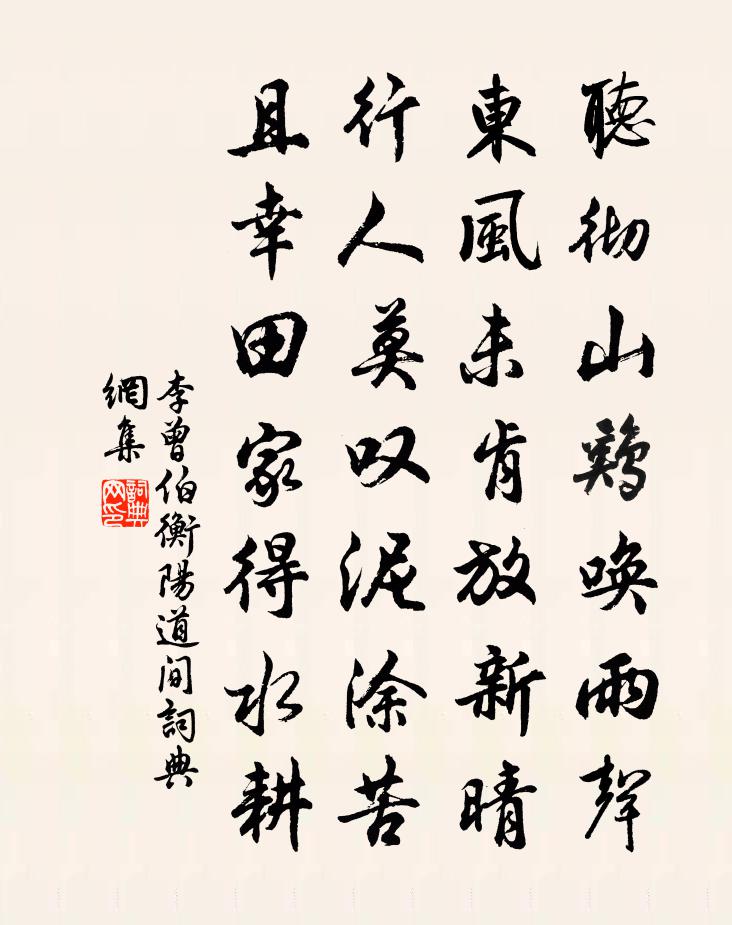 聽彻山鷄唤雨聲
東風未肯放新晴
行人莫叹泥涂苦
且幸田家得水耕
李曾伯衡陽道间詞典
網集
詞典
网印